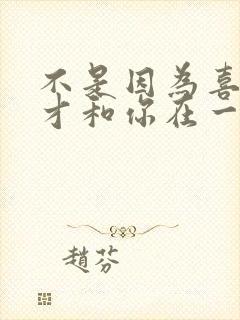 不是因為喜
才和你在一
趙芬